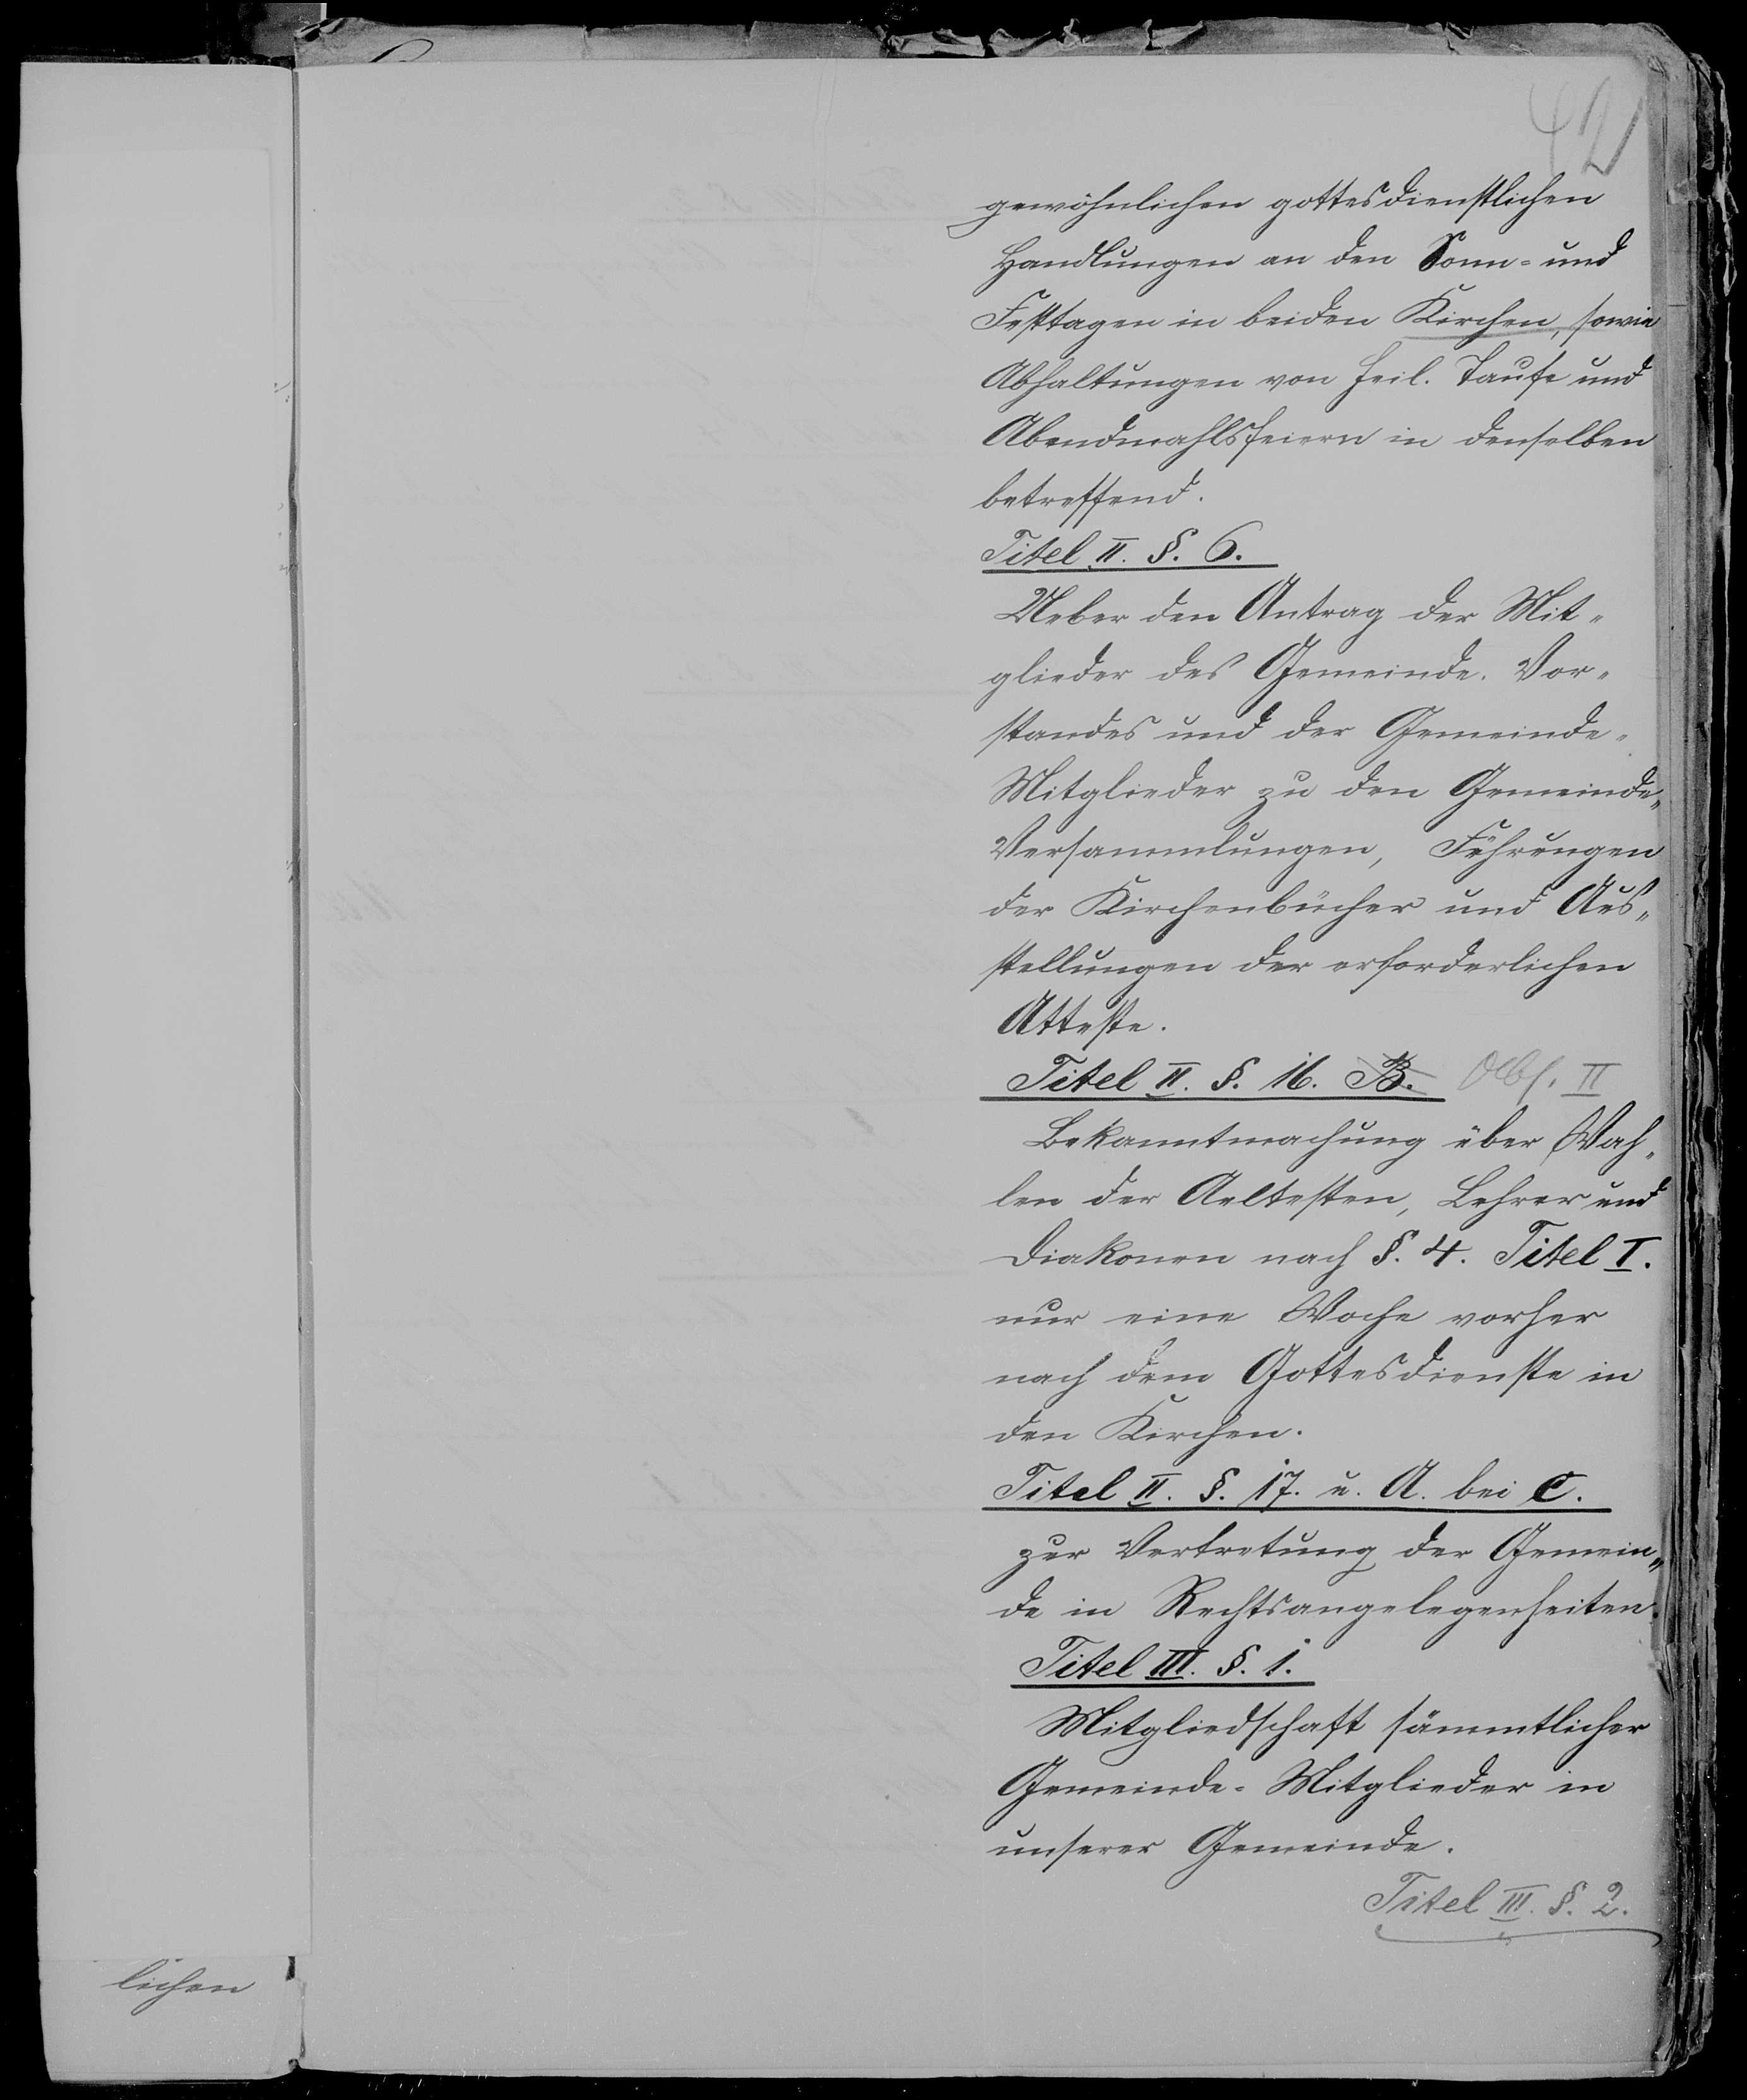 42
gewöhnlichen gottesdienstlichen
Handlungen an den Sonn- und
Festtagen in beiden Kirchen, sowie
Abhaltungen von heil. Taufe und
Abendmahlsfeiern in denselben
betreffend.
Titel II. §. 6.
Ueber den Antrag der Mit-
glieder des Gemeinde. Vor-
standes und der Gemeinde-
Mitglieder zu den Gemeinde-
Versammlungen, Führungen
der Kirchenbücher und Aus-
stellungen der erforderlichen
Atteste.
Titel II. §. 16. B. Abs. II
Bekanntmachung über Wah-
len der Aeltesten, Lehrer und
Diakonen nach §. 4. Titel I.
nur eine Woche vorher
nach dem Gottesdienste in
den Kirchen.
Titel II. §. 17. u. A. bei C.
zur Vertretung der Gemein-
de in Rechtsangelegenheiten.
Titel III. §. 1.
Mitgliedschaft sämmtlicher
Gemeinde-Mitglieder in
unserer Gemeinde.
Titel III. §. 2.
lichen